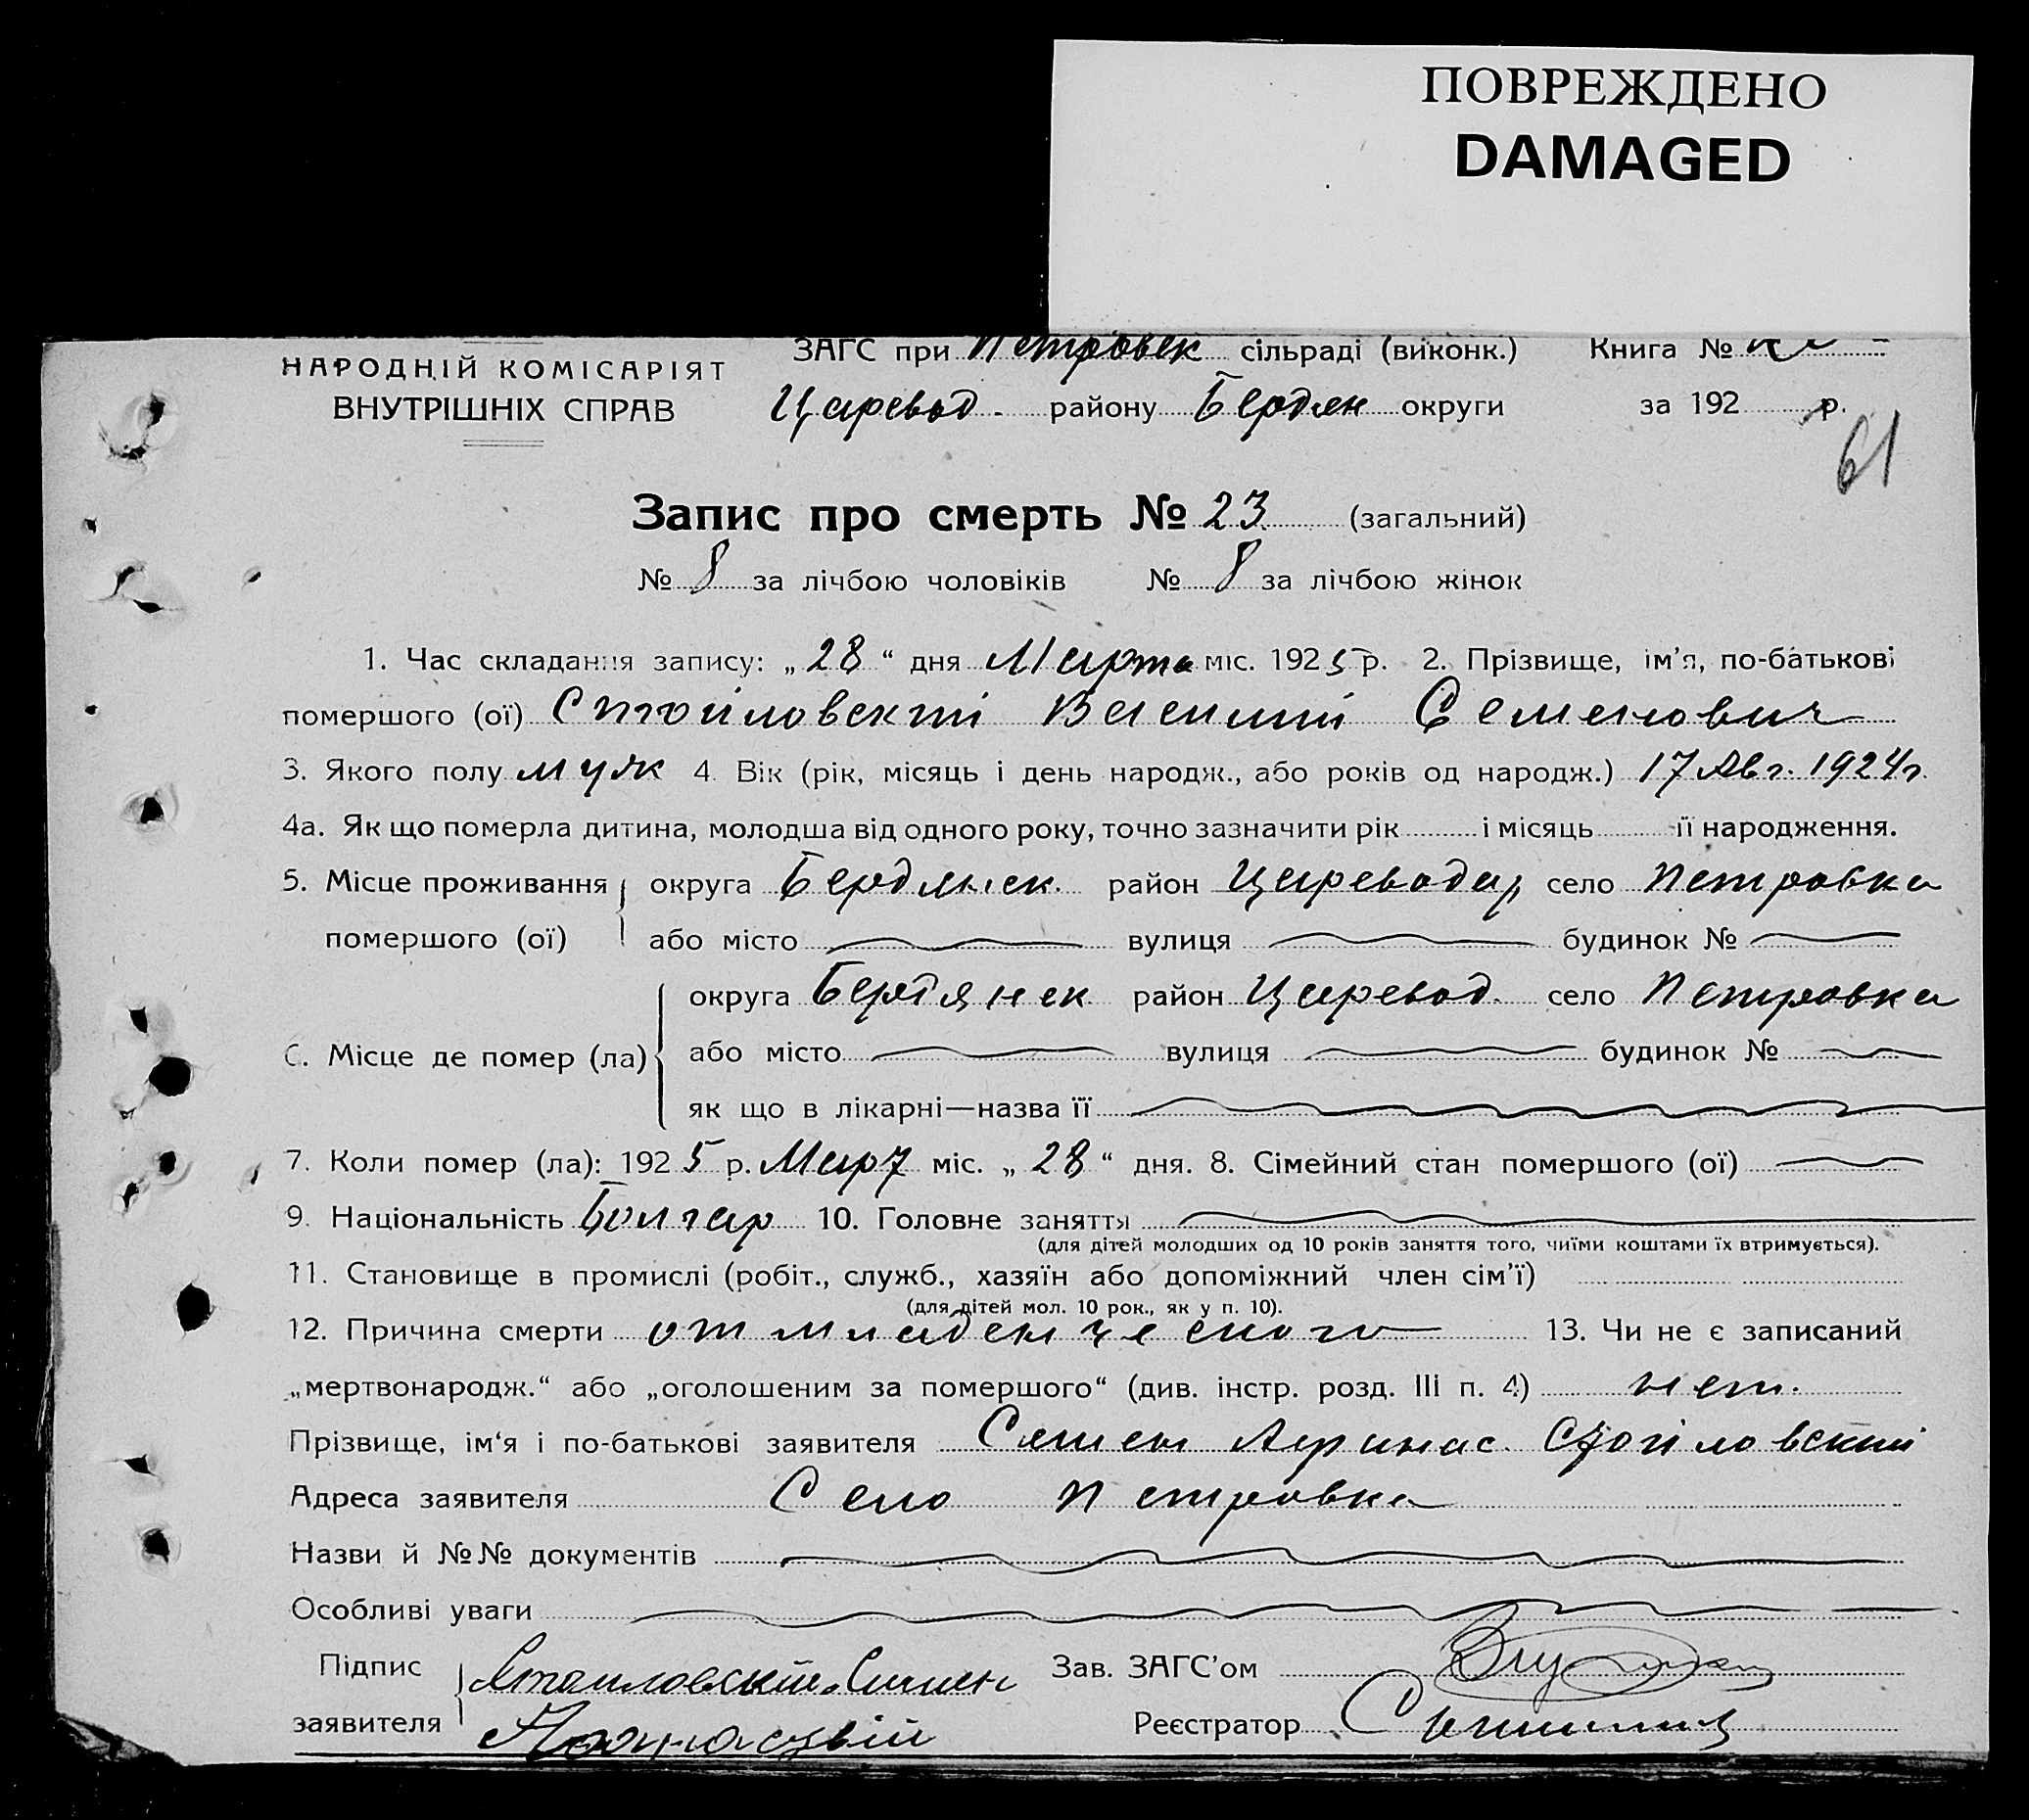 ПОВРЕЖДЕНО
DAMAGED
НАРОДНІЙ КОМІСАРІЯТ
ВНУТРІШНІХ СПРАВ
ЗАГС при Петровск сільраді (виконк.) Книга №
Царевод. району Бердян округи за 192 р.
61
Запис про смерть № 23 (загальний)
№ 8 за лічбою чоловіків № 8 за лічбою жінок
1. Час складання запису: „28“ дня Марта міс. 1925 р. 2. Прізвище, ім'я, по-батькові
помершого (ої) Стойловскій Василий Семенович
3. Якого полу муж 4. Вік (рік, місяць і день народж., або років од народж.) 17 Авг. 1924 г.
4а. Як що померла дитина, молодша від одного року, точно зазначити рік і місяць її народження.
5. Місце проживання округа Бердянск. район Цареводар село Петровка
помершого (ої) або місто вулиця будинок №
округа Бердянск район Царевод. село Петровка
6. Місце де помер (ла) або місто вулиця будинок №
як що в лікарні—назва її
7. Коли помер (ла): 1925 р. Март міс. „28“ дня. 8. Сімейний стан помершого (ої)
9. Національність Болгар 10. Головне заняття
(для дітей молодших од 10 років заняття того, чиїми коштами їх втримується).
11. Становище в промислі (робіт., служб., хазяїн або допоміжний член сім'ї)
(для дітей мол. 10 рок., як у п. 10).
12. Причина смерти от младенческого 13. Чи не є записаний
„мертвонародж.“ або „оголошеним за помершого“ (див. інстр. розд. III п. 4) нет.
Прізвище, ім'я і по-батькові заявителя Семен Афанас. Стойловский
Адреса заявителя Село Петровка
Назви й №№ документів
Особливі уваги
Підпис Стаиловскій Симен Зав. ЗАГС'ом
заявителя Реєстратор